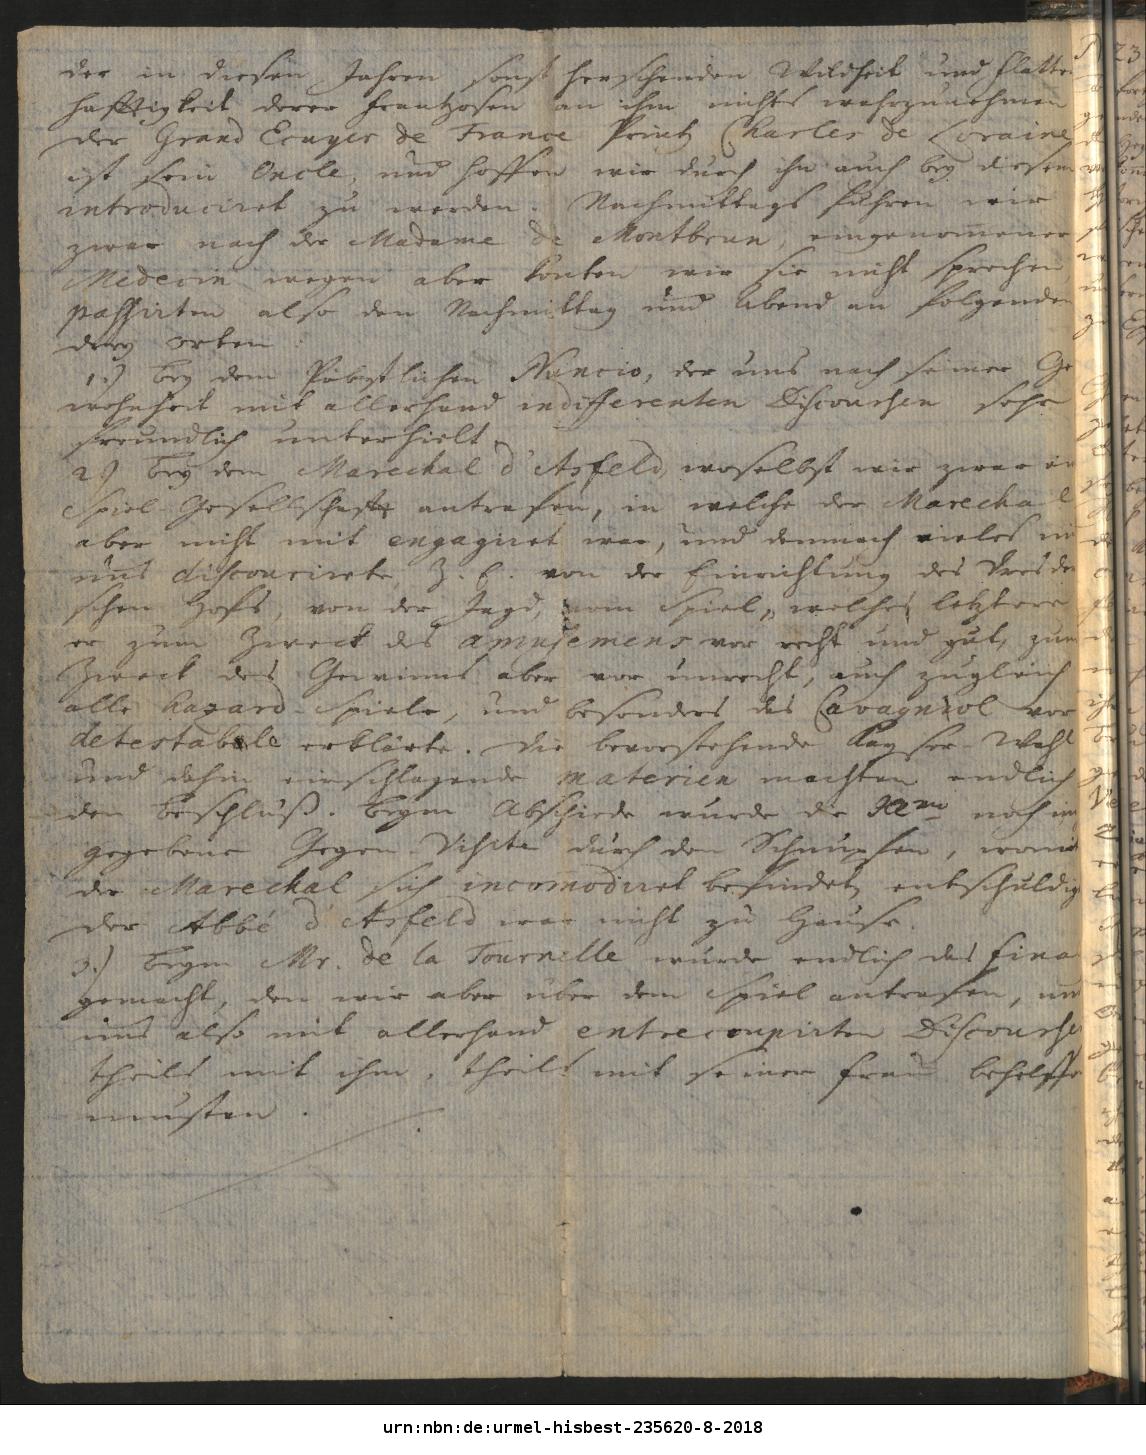 der in diesen Jahren sonst herschenden Wildheit und flatter
hafftigkeit derer Frantzosen an ihm nichts wahrzunehmen
der Grand Ecuyer de France Printz Charles de Loraine
ist sein Oncle, und hoffen wir durch ihn auch bey diesem
introduciret zu werden. Nachmittags fuhren wir
zwar nach der Madame de Montbrun, eingenommener
Medecin wegen aber konten wir sie nicht sprechen
passirten also den Nachmittag und Abend an folgenden
drey orten:
1.) bey dem Päbstlichen Nuncio, der uns nach seiner Ge
wohnheit mit allerhand indifferenten Discourßen sehr
freundlich unterhielt.
2.) bey dem Marechal d'Asfeld, woselbst wir zwar ein
Spiel-Gesellschafft antrafen, in welche der Marechal
aber nicht mit engagiret war, und demnach vieles mi
uns discourirete, Z. E. von der Einrichtung des Dresde
schen Hofs, von der Jagd, vom Spiel, welches letztere
er zum Zweck des amusemens vor recht und gut, zum
Zweck des Gewinns aber vor unrecht, auch zugleich
alle hazard-Spiele, und besonders das Cavagniol vor
detestable erklärte. Die bevorstehende Kayser-Wahl
und dahin einschlagende materien machten endlich
den Beschluß. Beym Abschiede wurde die noch
gegebene Gegen-Visite durch den Schnupfen, womit
der Marechal sich incommodiret befindet, entschuldig
der Abbé d'Asfeld war nicht zu Hause.
3.) Beym Mr. de la Tournelle wurde endlich das fina
gemacht, den wir aber über dem Spiel antrafen, un
uns also mit allerhand entrecoupirten Discourße
theils mit ihm, theils mit seiner Frau behelffe
musten.
urn:nbn:de:urmel-hisbest-235620-8-2018